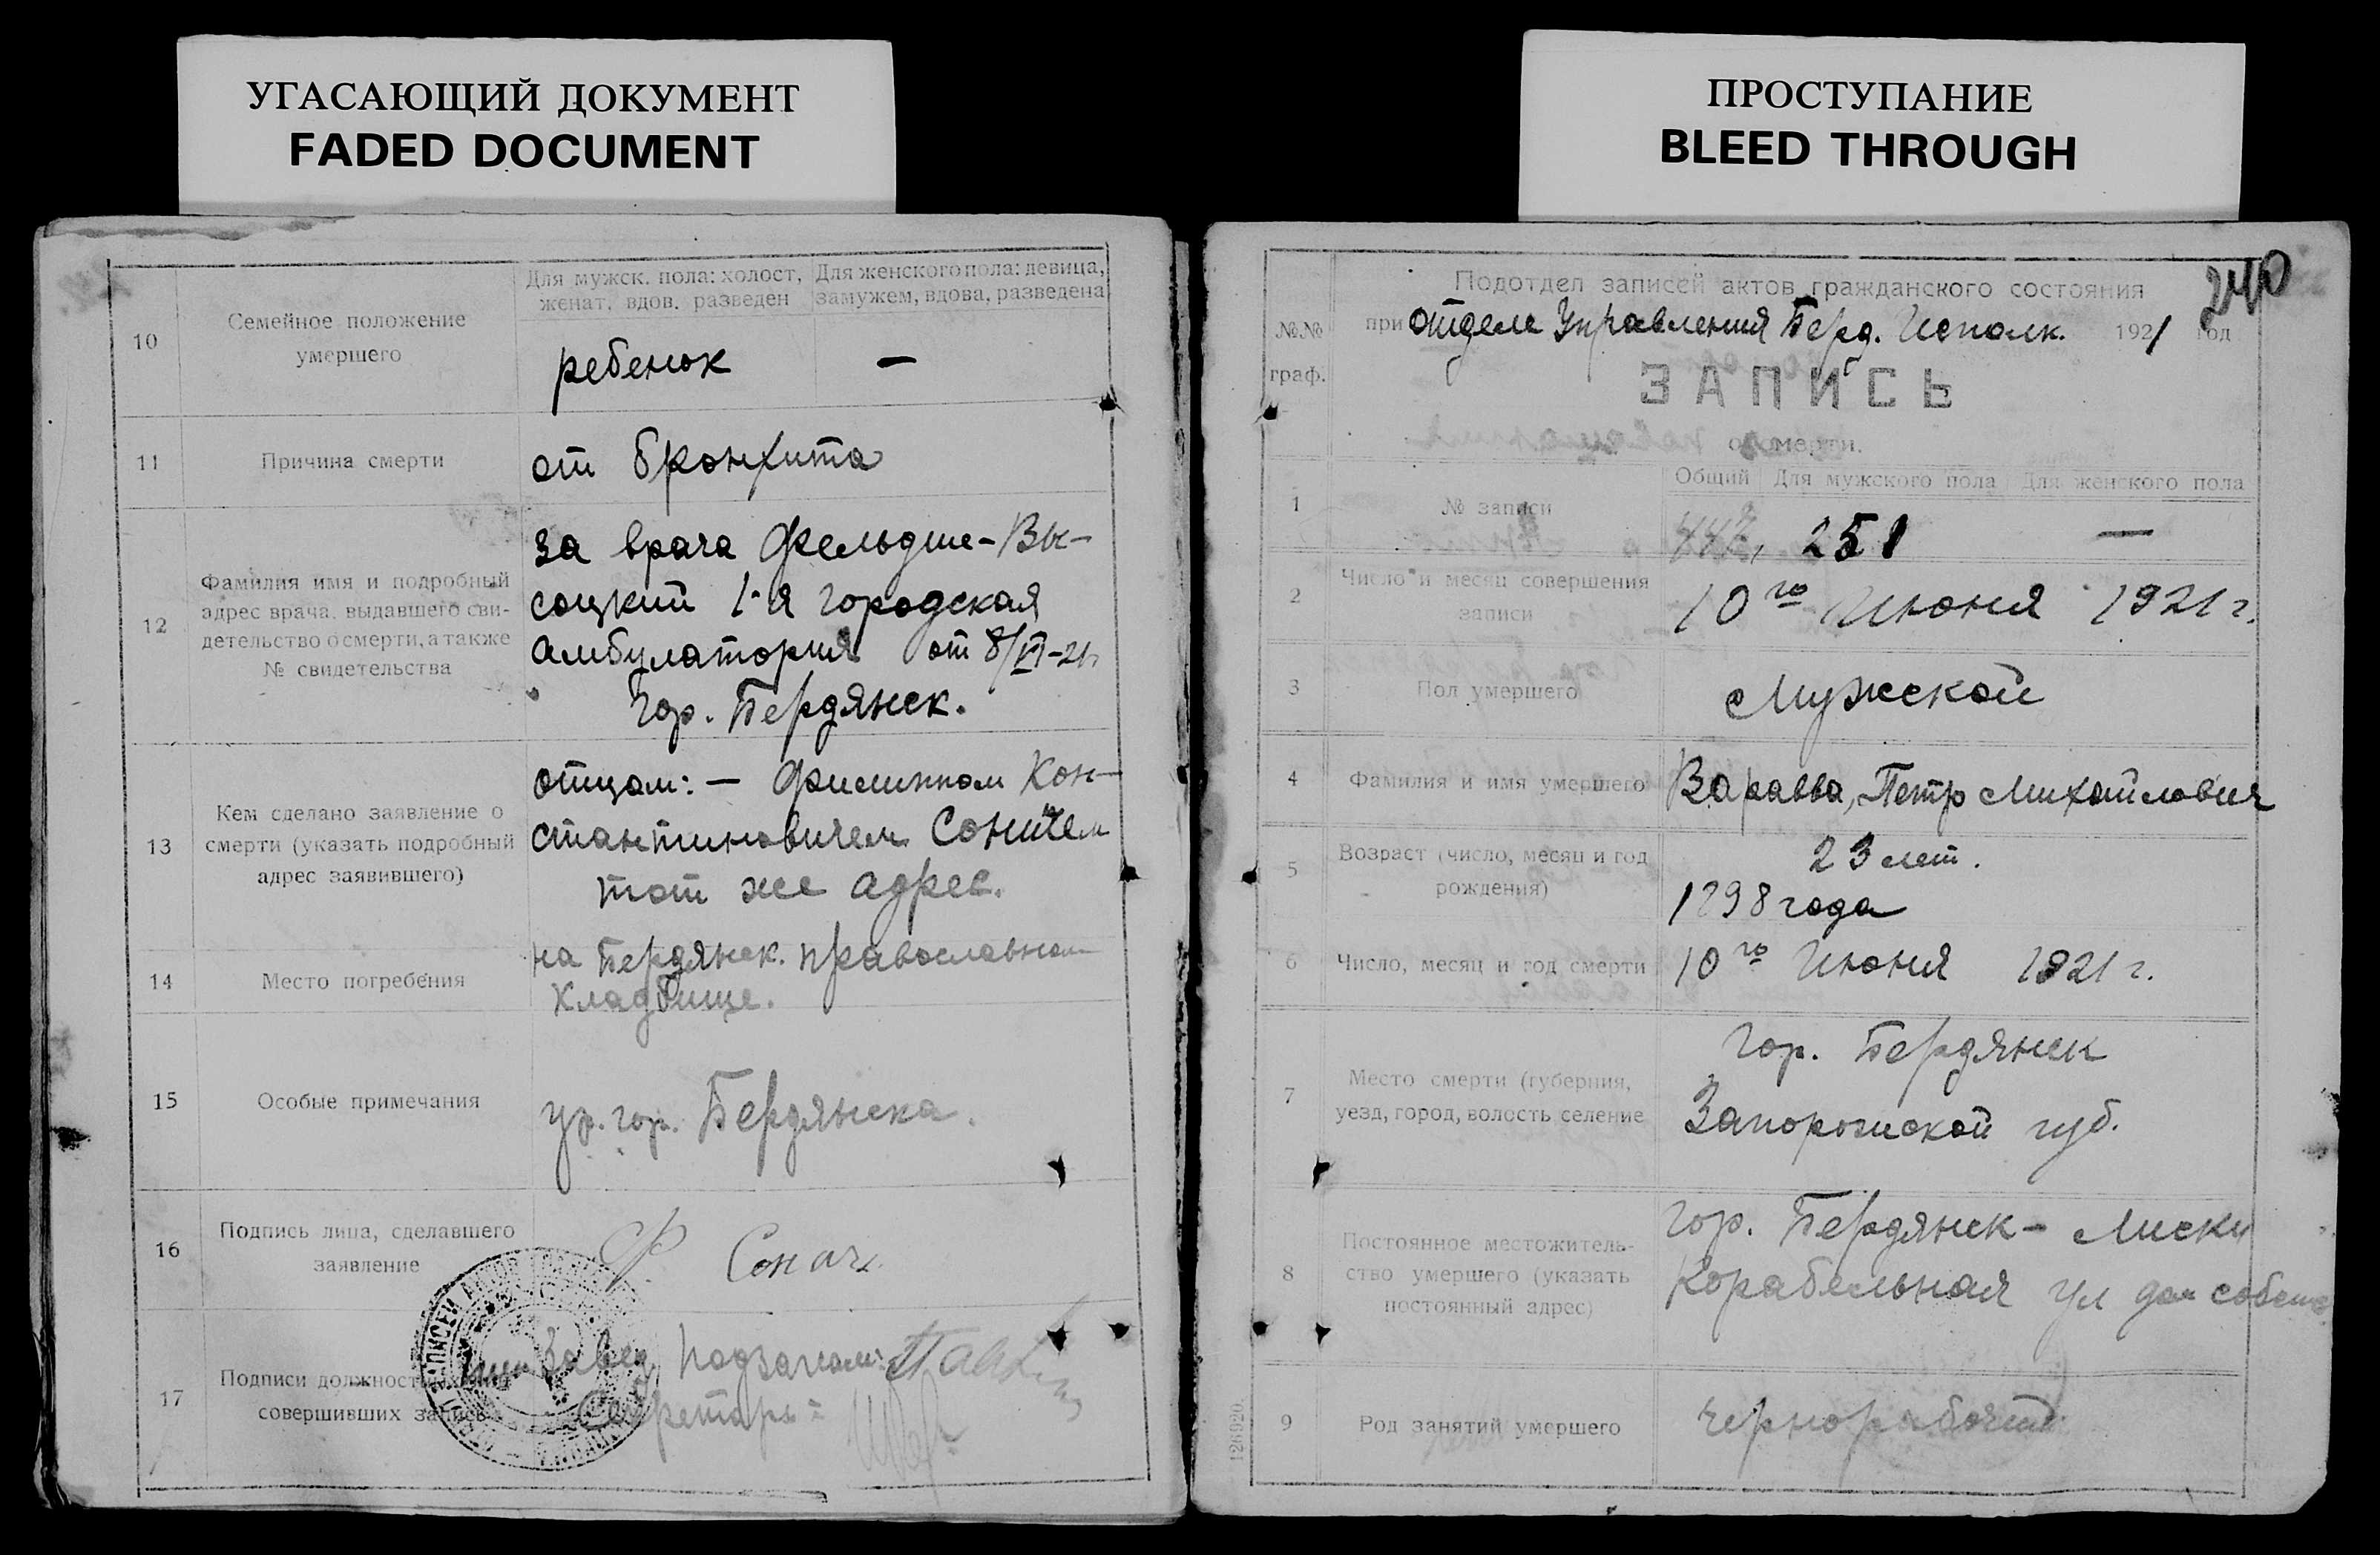 УГАСАЮЩИЙ ДОКУМЕНТ
FADED DOCUMENT
10
Семейное положение
умершего
Для мужск. пола: холост,
женат, вдов. разведен
Для женского пола: девица,
замужем, вдова, разведена
ребенок
—
11
Причина смерти
от бронхита
12
Фамилия имя и подробный
адрес врача, выдавшего сви-
детельство о смерти, а также
№ свидетельства
за врача Фельдше-Вы-
соцкий 1-я городская
амбулатория от 8/VI-21г
Гор. Бердянск.
13
Кем сделано заявление о
смерти (указать подробный
адрес заявившего)
отцом: — Филиппом Кон-
стантиновичем
тот же адрес.
14
Место погребения
на Бердянск. православном
кладбище.
15
Особые примечания
ур. гор. Бердянска.
16
Подпись лица, сделавшего
заявление
Ф. Сонач
17
Подписи должностных лиц
совершивших запись
Завед. Подзагсом:
Секретарь:
ПРОСТУПАНИЕ
BLEED THROUGH
240
№№
граф.
Подотдел записей актов гражданского состояния
при отделе Управления Берд. Исполк. 1921 год
ЗАПИСЬ
о смерти.
1
№ записи
Общий
Для мужского пола
Для женского пола
447, 251 —
2
Число и месяц совершения
записи
10го Июня 1921 г.
3
Пол умершего
Мужской
4
Фамилия и имя умершего
Варавва, Петр Михайлович
5
Возраст (число, месяц и год
рождения)
23 лет.
1898 года
6
Число, месяц и год смерти
10го Июня 1921 г.
7
Место смерти (губерния,
уезд, город, волость селение
Гор. Бердянск
Запорожской губ.
8
Постоянное местожитель-
ство умершего (указать
постоянный адрес)
Гор. Бердянск - Лиски
Корабельная ул дом собств
9
Род занятий умершего
чернорабочий
126920.